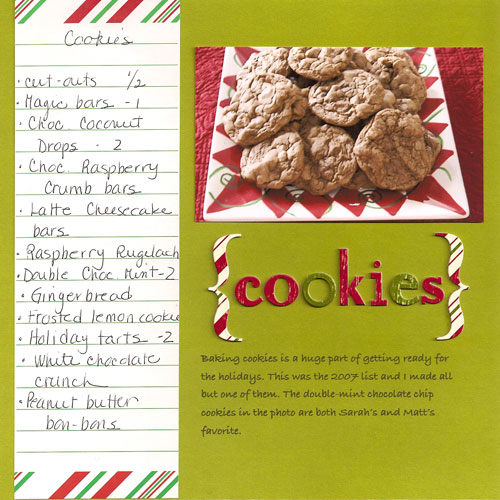 Cookie's
· cut-outs 1/2
· Magic bars - 1
· Choc Coconut
Drops - 2
· Choc. Raspberry
Crumb bars
· Latte Cheesecake
bars
· Raspberry Rugelach
· Double Choc Mint - 2
· Gingerbread
· Frosted lemon cookie
· Holiday tarts - 2
· White chocolate
crunch
· Peanut butter
bon-bons
{cookies}
Baking cookies is a huge part of getting ready for
the holidays. This was the 2007 list and I made all
but one of them. The double-mint chocolate chip
cookies in the photo are both Sarah's and Matt's
favorite.